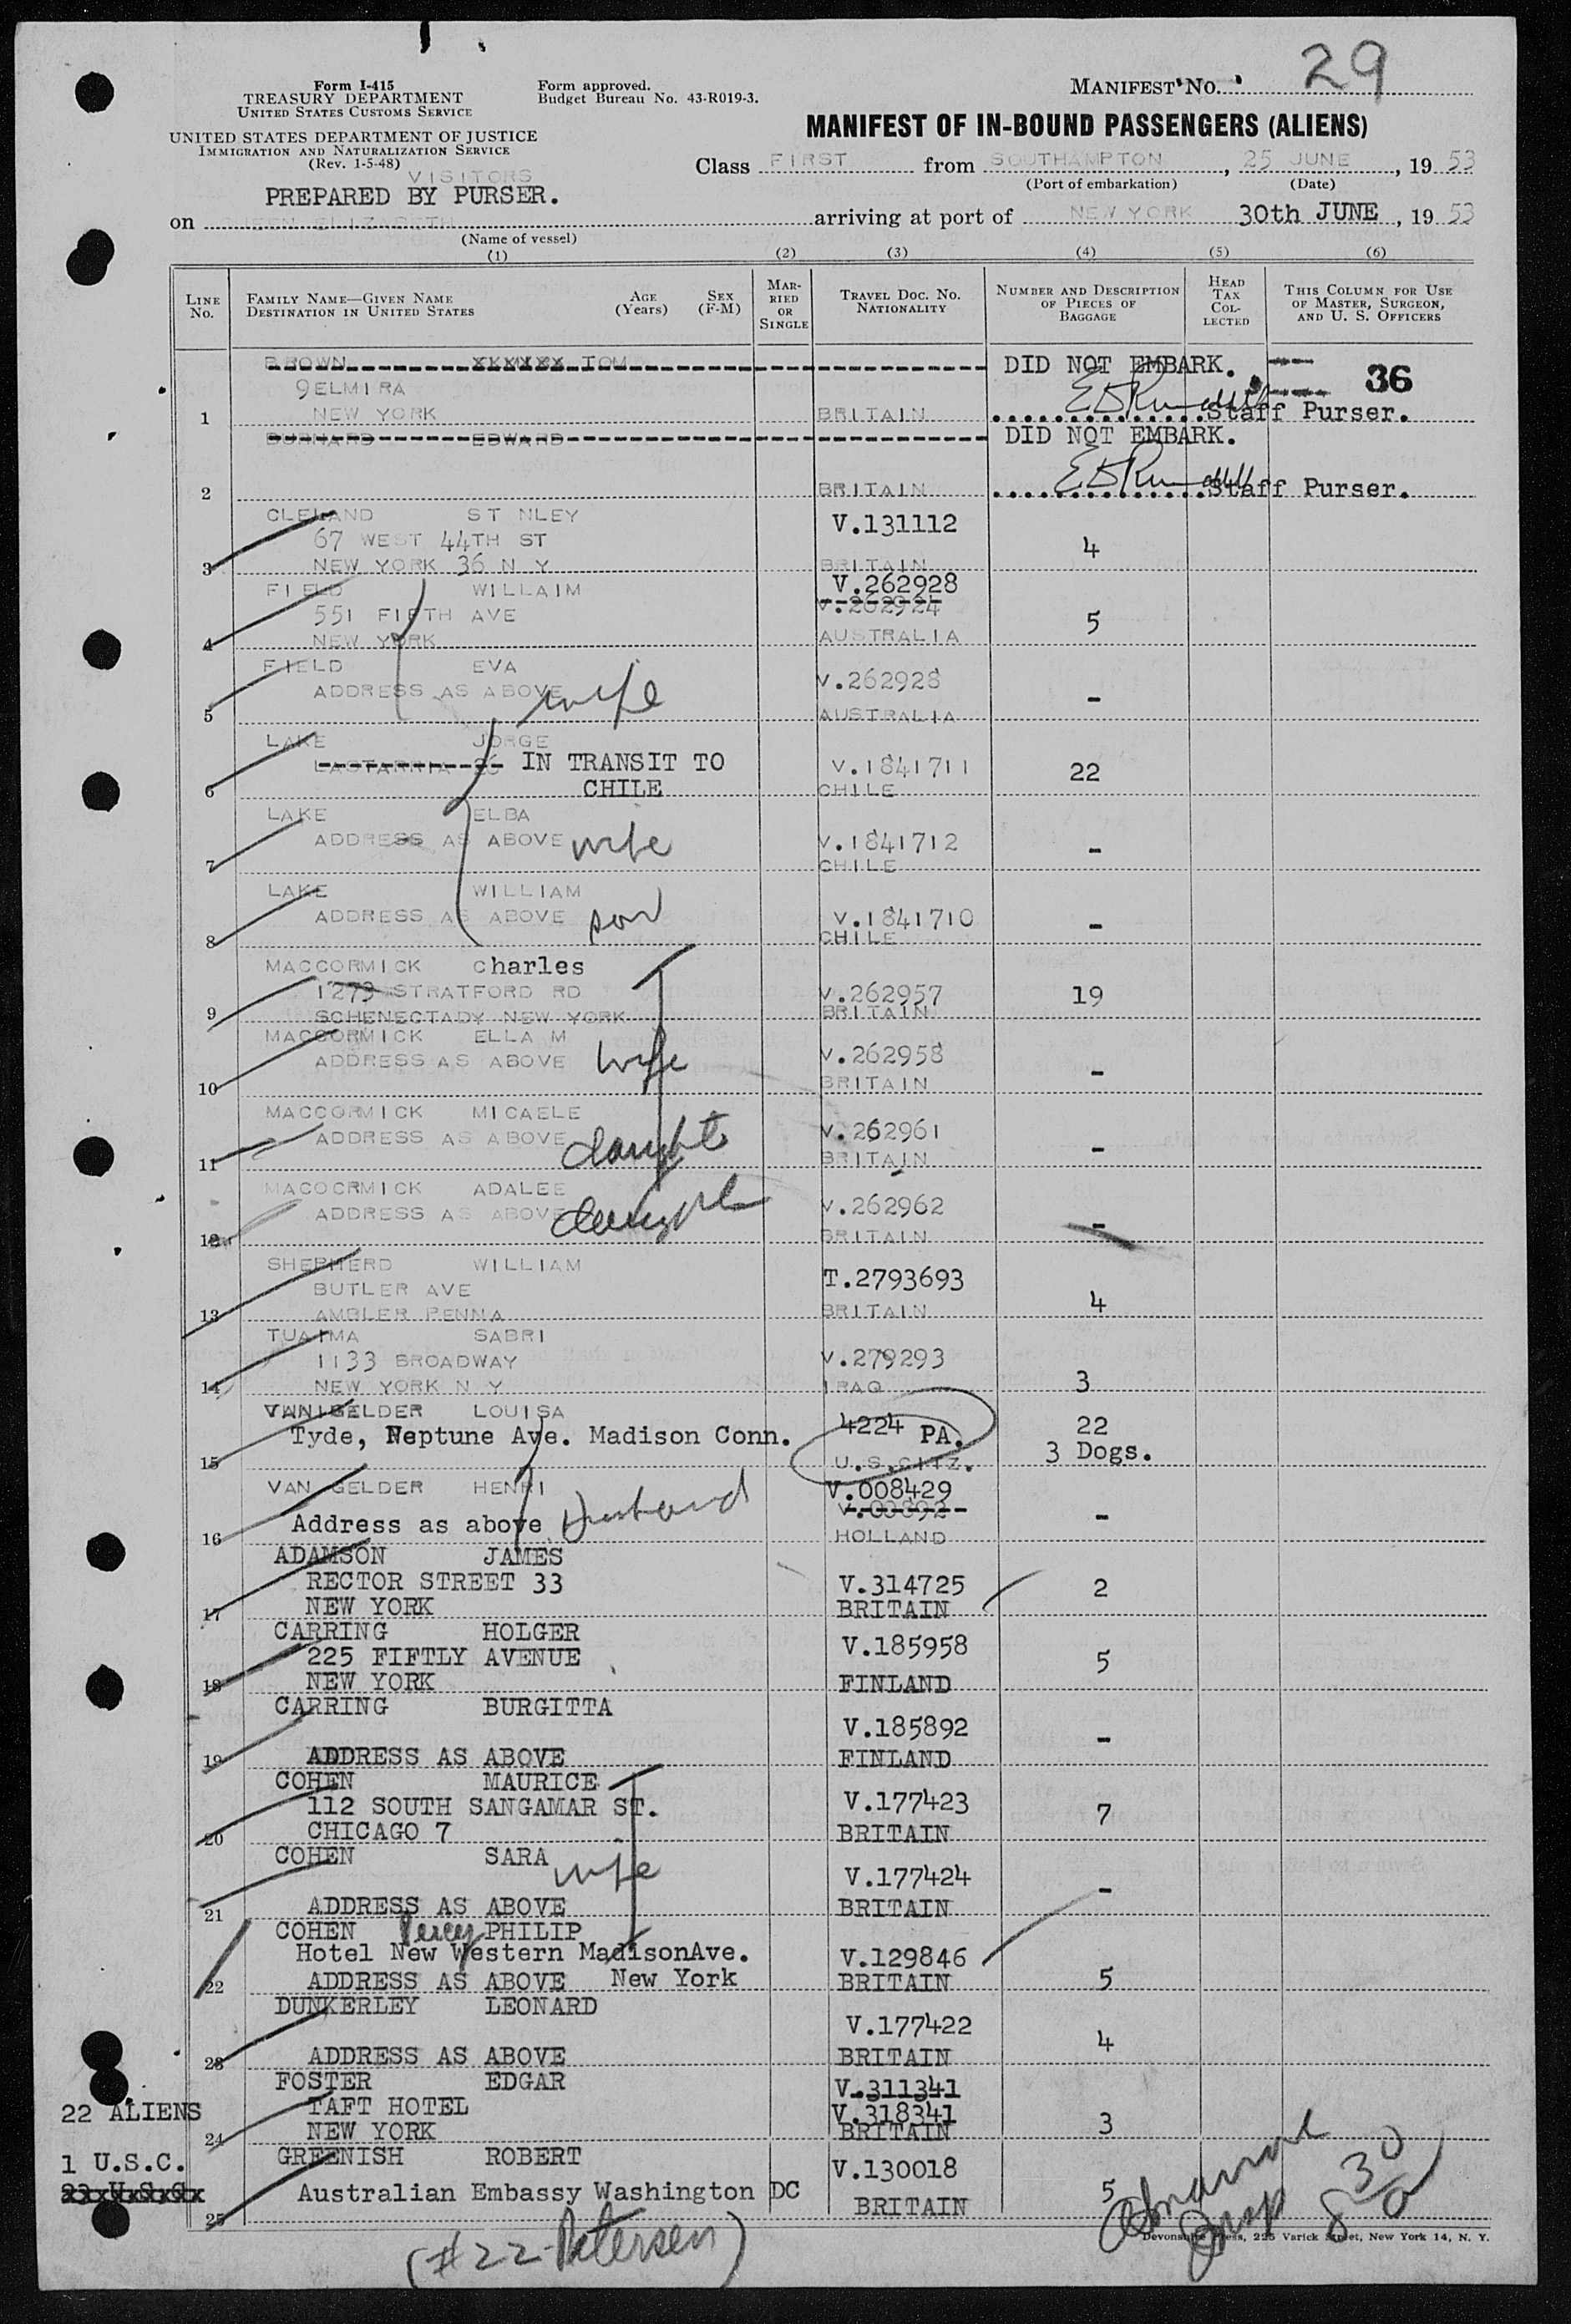 29
Form I-415
TREASURY DEPARTMENT
UNITED STATES CUSTOMS SERVICE
Form approved.
Budget Bureau No. 43-R019-3.
MANIFEST No.
UNITED STATES DEPARTMENT OF JUSTICE
IMMIGRATION AND NATURALIZATION SERVICE
(Rev. 1-5-48)
MANIFEST OF IN-BOUND PASSENGERS (ALIENS)
VISITORS
PREPARED BY PURSER.
Class FIRST from SOUTHAMPTON, 25 JUNE, 19 53
(Port of embarkation) (Date)
on QUEEN ELIZABETH arriving at port of NEW YORK 30th JUNE, 19 53
(Name of vessel)
(1) (2) (3) (4) (5) (6)
LINE No. FAMILY NAME—GIVEN NAME DESTINATION IN UNITED STATES AGE (Years) SEX (F-M) MARRIED OR SINGLE TRAVEL DOC. No. NATIONALITY NUMBER AND DESCRIPTION OF PIECES OF BAGGAGE HEAD TAX COLLECTED THIS COLUMN FOR USE OF MASTER, SURGEON, AND U. S. OFFICERS
BROWN TOM DID NOT EMBARK. 36
9ELMIRA
1 NEW YORK BRITAIN Staff Purser.
BURNARD EDWARD DID NOT EMBARK.
2 BRITAIN Staff Purser.
CLELAND ST NLEY V.131112
67 WEST 44TH ST 4
3 NEW YORK 36 N Y BRITAIN
FIELD WILLAIM V.262928
551 FIFTH AVE V.262924 5
4 NEW YORK AUSTRALIA
FIELD EVA V.262928
ADDRESS AS ABOVE wife -
5 AUSTRALIA
LAKE JORGE
LASTARRIA 26 IN TRANSIT TO V.1841711 22
6 CHILE CHILE
LAKE ELBA
ADDRESS AS ABOVE wife V.1841712 -
7 CHILE
LAKE WILLIAM
ADDRESS AS ABOVE son V.1841710 -
8 CHILE
MACCORMICK Charles
1273 STRATFORD RD V.262957 19
9 SCHENECTADY NEW YORK BRITAIN
MACCORMICK ELLA M
ADDRESS AS ABOVE wife V.262958 -
10 BRITAIN
MACCORMICK MICAELE
ADDRESS AS ABOVE V.262961 -
11 BRITAIN
MACOCRMICK ADALEE
ADDRESS AS ABOVE V.262962 -
12 BRITAIN
SHEPHERD WILLIAM
BUTLER AVE T.2793693
13 AMBLER PENNA BRITAIN 4
TUAIMA SABRI
1133 BROADWAY V.279293
14 NEW YORK N Y IRAQ 3
VAN GELDER LOUISA 4224 PA. 22
Tyde, Neptune Ave. Madison Conn. 3 Dogs.
15 U.S.CITZ.
VAN GELDER HENRI V.008429
Address as above Husband V.00892 -
16 HOLLAND
ADAMSON JAMES
RECTOR STREET 33 V.314725 2
17 NEW YORK BRITAIN
CARRING HOLGER
225 FIFTLY AVENUE V.185958 5
18 NEW YORK FINLAND
CARRING BURGITTA
V.185892 -
19 ADDRESS AS ABOVE FINLAND
COHEN MAURICE
112 SOUTH SANGAMAR ST. V.177423 7
20 CHICAGO 7 BRITAIN
COHEN SARA wife
V.177424 -
21 ADDRESS AS ABOVE BRITAIN
COHEN Percy PHILIP
Hotel New Western MadisonAve. V.129846
22 ADDRESS AS ABOVE New York BRITAIN 5
DUNKERLEY LEONARD
V.177422 4
23 ADDRESS AS ABOVE BRITAIN
FOSTER EDGAR V.311341
TAFT HOTEL V.318341 3
24 NEW YORK BRITAIN
GREENISH ROBERT V.130018
Australian Embassy Washington DC BRITAIN 5
25
22 ALIENS
1 U.S.C.
830 a
(#22-Petersen)
Devonshire Press, 225 Varick Street, New York 14, N. Y.